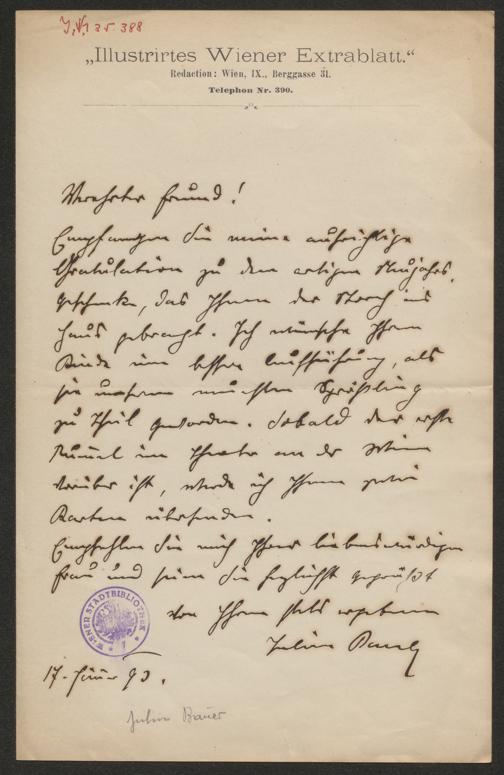 J.N. 125.388
„Illustrirtes Wiener Extrablatt.“
Redaction: Wien, IX., Berggasse 31.
Telephon Nr. 390.
Verehrter Freund!
Empfangen Sie meine aufrichtige
Gratulation zu dem artigen Neujahrs-
geschenke, das Ihnen der Storch ins
Haus gebracht. Ich wünsche Ihrem
Kinde eine bessere Aufführung, als
sie unserem neuesten Sprößling
zu Theil geworden. Sobald der erste
Rummel im Theater an der Wien
vorüber ist, werde ich Ihnen zwei
Karten übersenden.
Empfehlen Sie mich Ihrer liebenswürdigen
Frau und seien Sie herzlichst gegrüßt
von Ihrem stets ergebenen
Julius Bauer
WIENER STADTBIBLIOTHEK
17. Jänner 93.
Julius Bauer